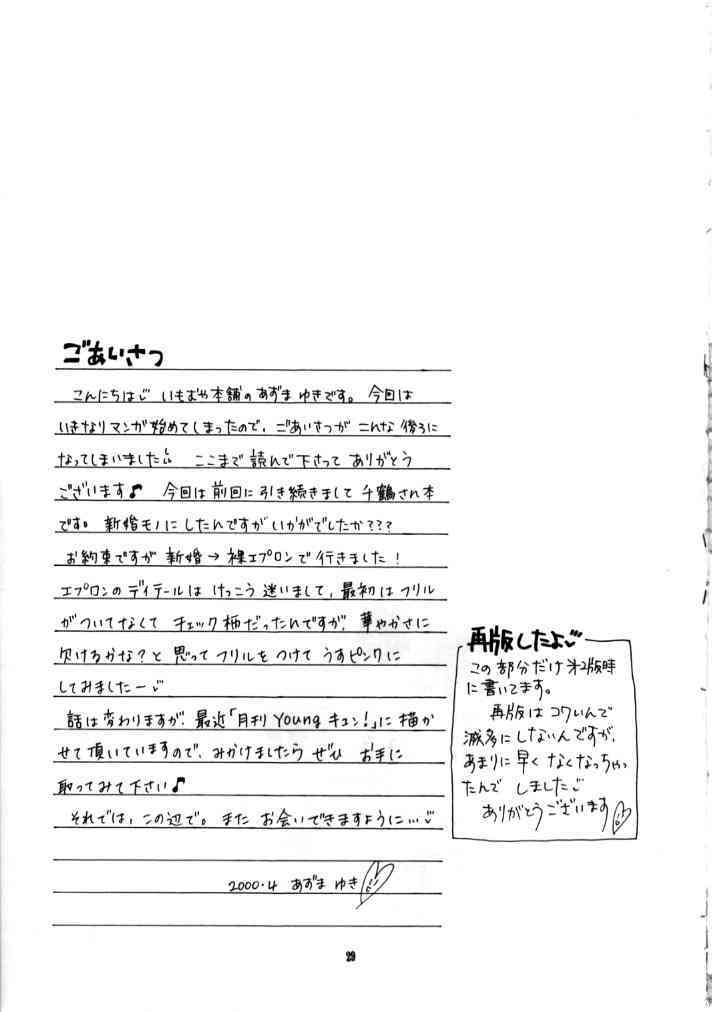 ごあいさつ
こんにちは♡ いもおや本舗のあずま ゆきです。今回は
いきなりマンガ始めてしまったので、ごあいさつが こんな後ろに
なってしまいました ここまで読んで下さって ありがとう
ございます♪ 今回は前回に引き続きまして千鶴さん本
です。新婚モノにしたんですがいかがでしたか???
お約束ですが新婚→裸エプロンで行きました!
エプロンのディテールは けっこう迷いまして、最初はフリル
がついてなくて チェック柄だったんですが、華やかさに
欠けるかな?と思ってフリルをつけて うすピンクに
してみましたー♡
話は変わりますが、最近「月刊Youngキュン!」に描か
せて頂いていますので、みかけましたら ぜひ お手に
取ってみて下さい♪
それでは、この辺で。また お会いできますように…♡
2000.4 あずま ゆき
再版したよ♡
この部分だけ第2版時
に書いてます。
再版はコワいんで
滅多にしないんですが、
あまりに早くなくなっちゃっ
たんで しました♡
ありがとうございます
29